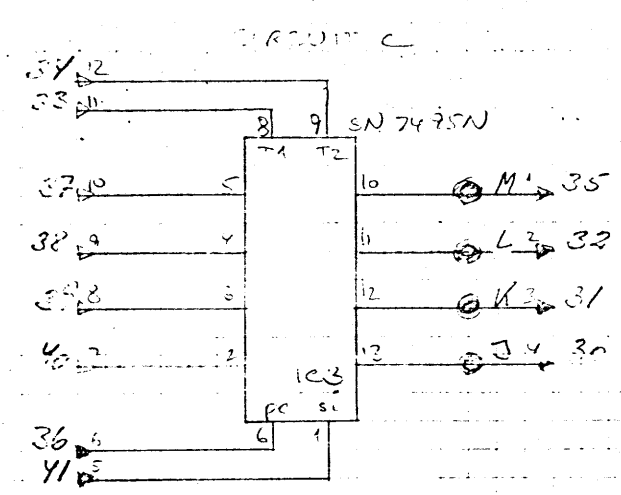 CIRCUIT C
34 12
33 11
8 9 SN 7495N
T1 T2
37 10 5 10 M 1 35
38 9 4 11 L 2 32
39 8 3 12 K 3 31
40 7 2 13 J 4 30
IC3
pc si
36 6 6 1
41 5